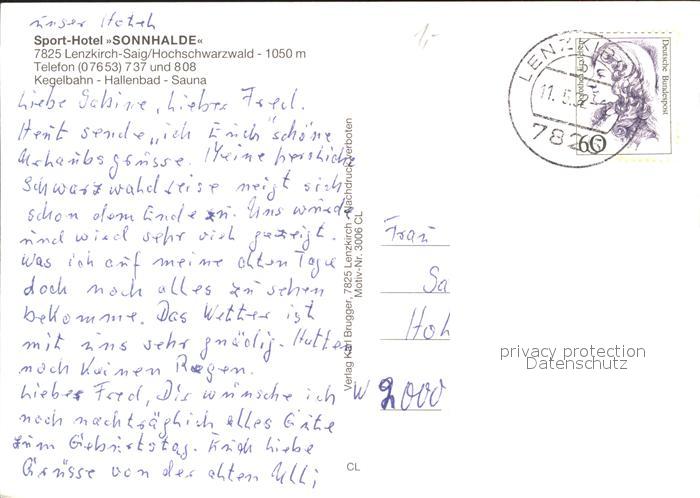 unser Hotel
Sport-Hotel »SONNHALDE«
7825 Lenzkirch-Saig/Hochschwarzwald - 1050 m
Telefon (07653) 737 und 808
Kegelbahn - Hallenbad - Sauna
Liebe Sabine, Lieber Fred.
Heut sende „ich Euch" schöne
Urlaubsgrüsse. Meine herrliche
Schwarzwaldreise neigt sich
schon dem Ende zu. Uns wurde
und wird sehr viel gezeigt.
Was ich auf meine alten Tage
doch noch alles zu sehen
bekomme. Das Wetter ist
mit uns sehr gnädig. Hatten
noch keinen Regen.
Lieber Fred, Dir wünsche ich
noch nachträglich alles Gute
zum Geburtstag. Euch liebe
Grüsse von der alten Ulli
Verlag Karl Brugger, 7825 Lenzkirch - Nachdruck verboten
Motiv-Nr. 3006 CL
CL
1,-
LENZKIR
11. 5. 92
782
Deutsche Bundespost
60
Frau
Sa
Hoh
W 2000
privacy protection
Datenschutz